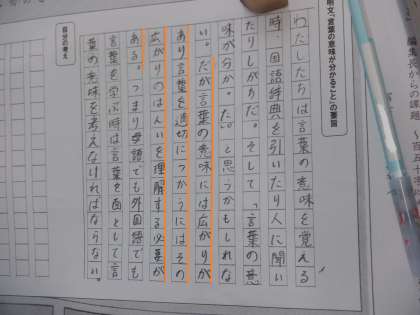 明文「言葉の意味が分かること」の要旨
わたしたちは言葉の意味を覚える
時、国語辞典を引いたり人に聞い
たりしがちだ。そして「言葉の意
味が分かった。」と思うかもしれな
い。だが言葉の意味には広がりが
あり言葉を適切につかうにはその
広がりのはんいを理解する必要が
ある。つまり母語でも外国語でも
言葉を学ぶ時は言葉を面として言
葉の意味を考えなければならない。
自分の考え